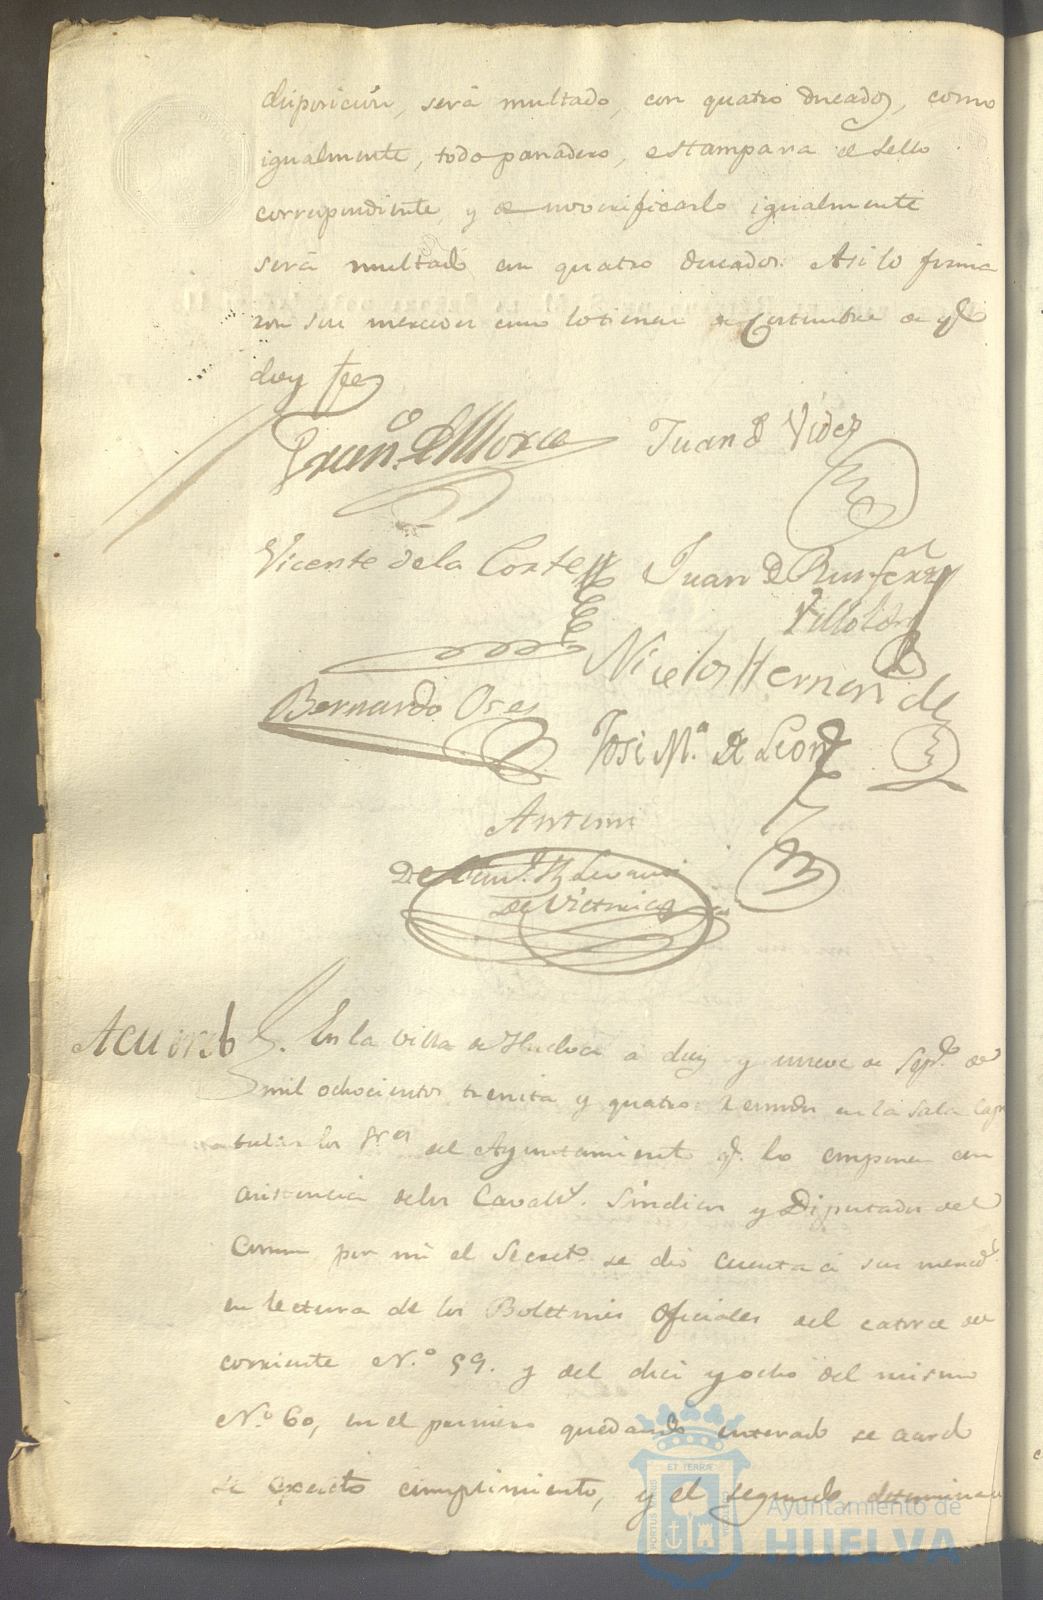 disposicion, será multado, con quatro ducados, como
igualmente, todo panadero, estampara el sello
correspondiente, y de no verificarlo igualmente
será multado en quatro ducados. Asi lo firma
ron sus mercedes como lo tienen de Costumbre de qe
doy fee
Franco. de Mora Juan de Videz
Vicente de la Corte Juan de
Nicolas Hernandez
Bernardo Oses
José Ma. de Leon
Antemi
de Victoria
Acuerdo
En la villa de Huelva a diez y nueve de Sepe. de
mil ochocientos treinta y quatro reunidos en la sala Capi
tular los Sres del Ayuntamiento q. lo componen con
asistencia de los Cavalls. Sindicos y Diputados del
Comun por mi el Secreto. se dió cuenta á sus merceds.
en lectura de los Boletines Oficiales del catorce del
corriente No. 59. y del diez y ocho del mismo
No. 60, en el primero quedando enterado se acordo
se exacto cumplimiento, y el segundo determinan
ET TERRAE
PORTUS MARIS
CUSTODIA
Ayuntamiento de
HUELVA